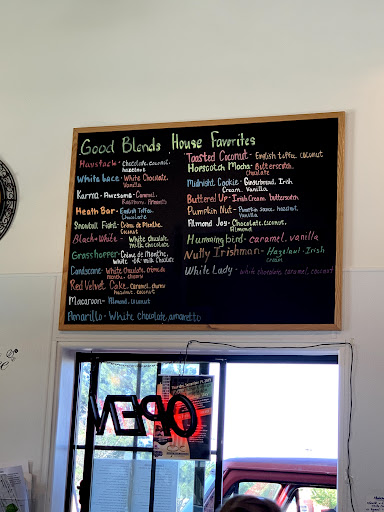 Good Blends House Favorites
Haystack - Chocolate, coconut, hazelnut
White Lace - White Chocolate, Vanilla
Karma - Awesome - Caramel,
Heath Bar - English Toffee, Chocolate
Snowball Fight - Crème de Menthe, Coconut
Black & White - White chocolate, milk chocolate
Grasshopper - Crème de Menthe, White -OR- milk Chocolate
White chocolate, crème de menthe, cherry
Red Velvet Cake - Caramel, cherry, hazelnut, coconut
Macaroon - Almond, Coconut
Amarillo - White chocolate, amaretto
Toasted Coconut - English toffee, coconut
Hopscotch Mocha - Butterscotch, chocolate
Midnight Cookie - Gingerbread, Irish Cream, Vanilla
Buttered Up - Irish Cream, butterscotch
Pumpkin Nut - Pumpkin sauce, hazelnut, Vanilla
Almond Joy - Chocolate, coconut, Almond
Hummingbird - caramel, vanilla
Nutty Irishman - Hazelnut, Irish cream
White Lady - white chocolate, caramel, coconut
OPEN